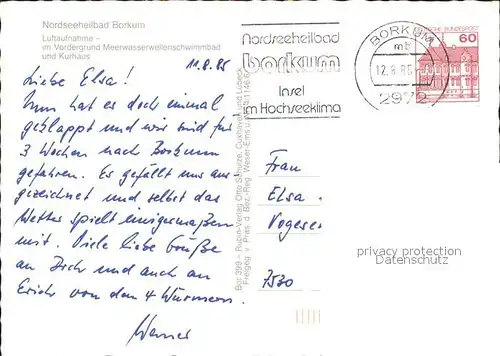 Nordseeheilbad Borkum
Luftaufnahme –
im Vordergrund Meerwasserwellenschwimmbad
und Kurhaus
11.8.85
Liebe Elsa!
Nun hat es doch einmal
geklappt und wir sind für
3 Wochen nach Borkum
gefahren. Es gefällt uns aus
gezeichnet und selbst das
Wetter spielt einigermaßen
mit. Viele liebe Grüße
an Dich und auch an
Erich von den 4 Würmern.
Werner
Bor 399 – Rubin-Verlag Otto Schulze, Cuxhaven und Lübeck
Freigeg. v. Präs. d. Bez.-Reg. Weser-Ems u.
Nordseeheilbad
borkum
Insel
im Hochseeklima
BORKUM
mb
12.8.85
2972
DEUTSCHE BUNDESPOST
60
Frau
Elsa
Vogeser
7530
privacy protection
Datenschutz